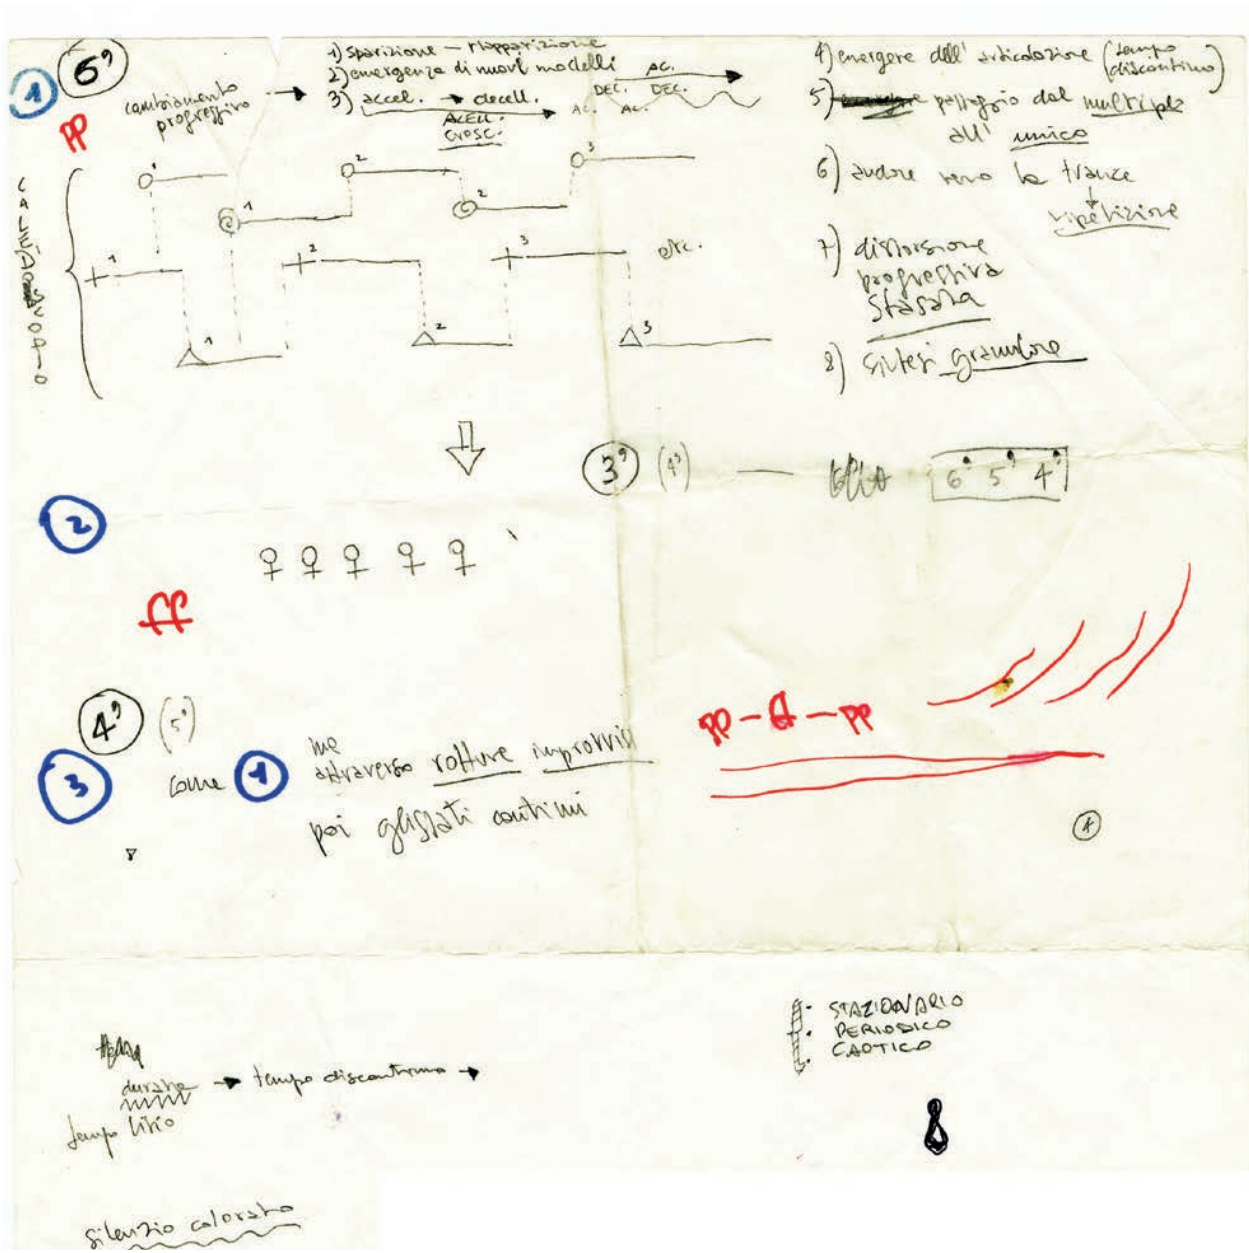 1
6'
pp
cambiamento
progressivo
1) sparizione - riapparizione
2) emergenza di nuovi modelli
3) accel. → decell.
ACELL.
CRESC.
AC.
DEC. DEC.
AC. AC.
4) emergere dell' articolazione (tempo
discontinuo)
5) passaggio dal multiplo
all' unico
6) andare verso la trance
↓
ripetizione
7) distorsione
progressiva
8) sintesi granulare
1
2
3
1
2
1
2
3
etc.
1
2
3
3' (4')
6' 5' 4'
2
ff
4' (5')
3
come 1
ma
attraverso rotture improvvis
poi glissati continui
pp - ff - pp
1
STAZIONARIO
PERIODICO
CAOTICO
durata → tempo discontinuo →
tempo liscio
silenzio colorato